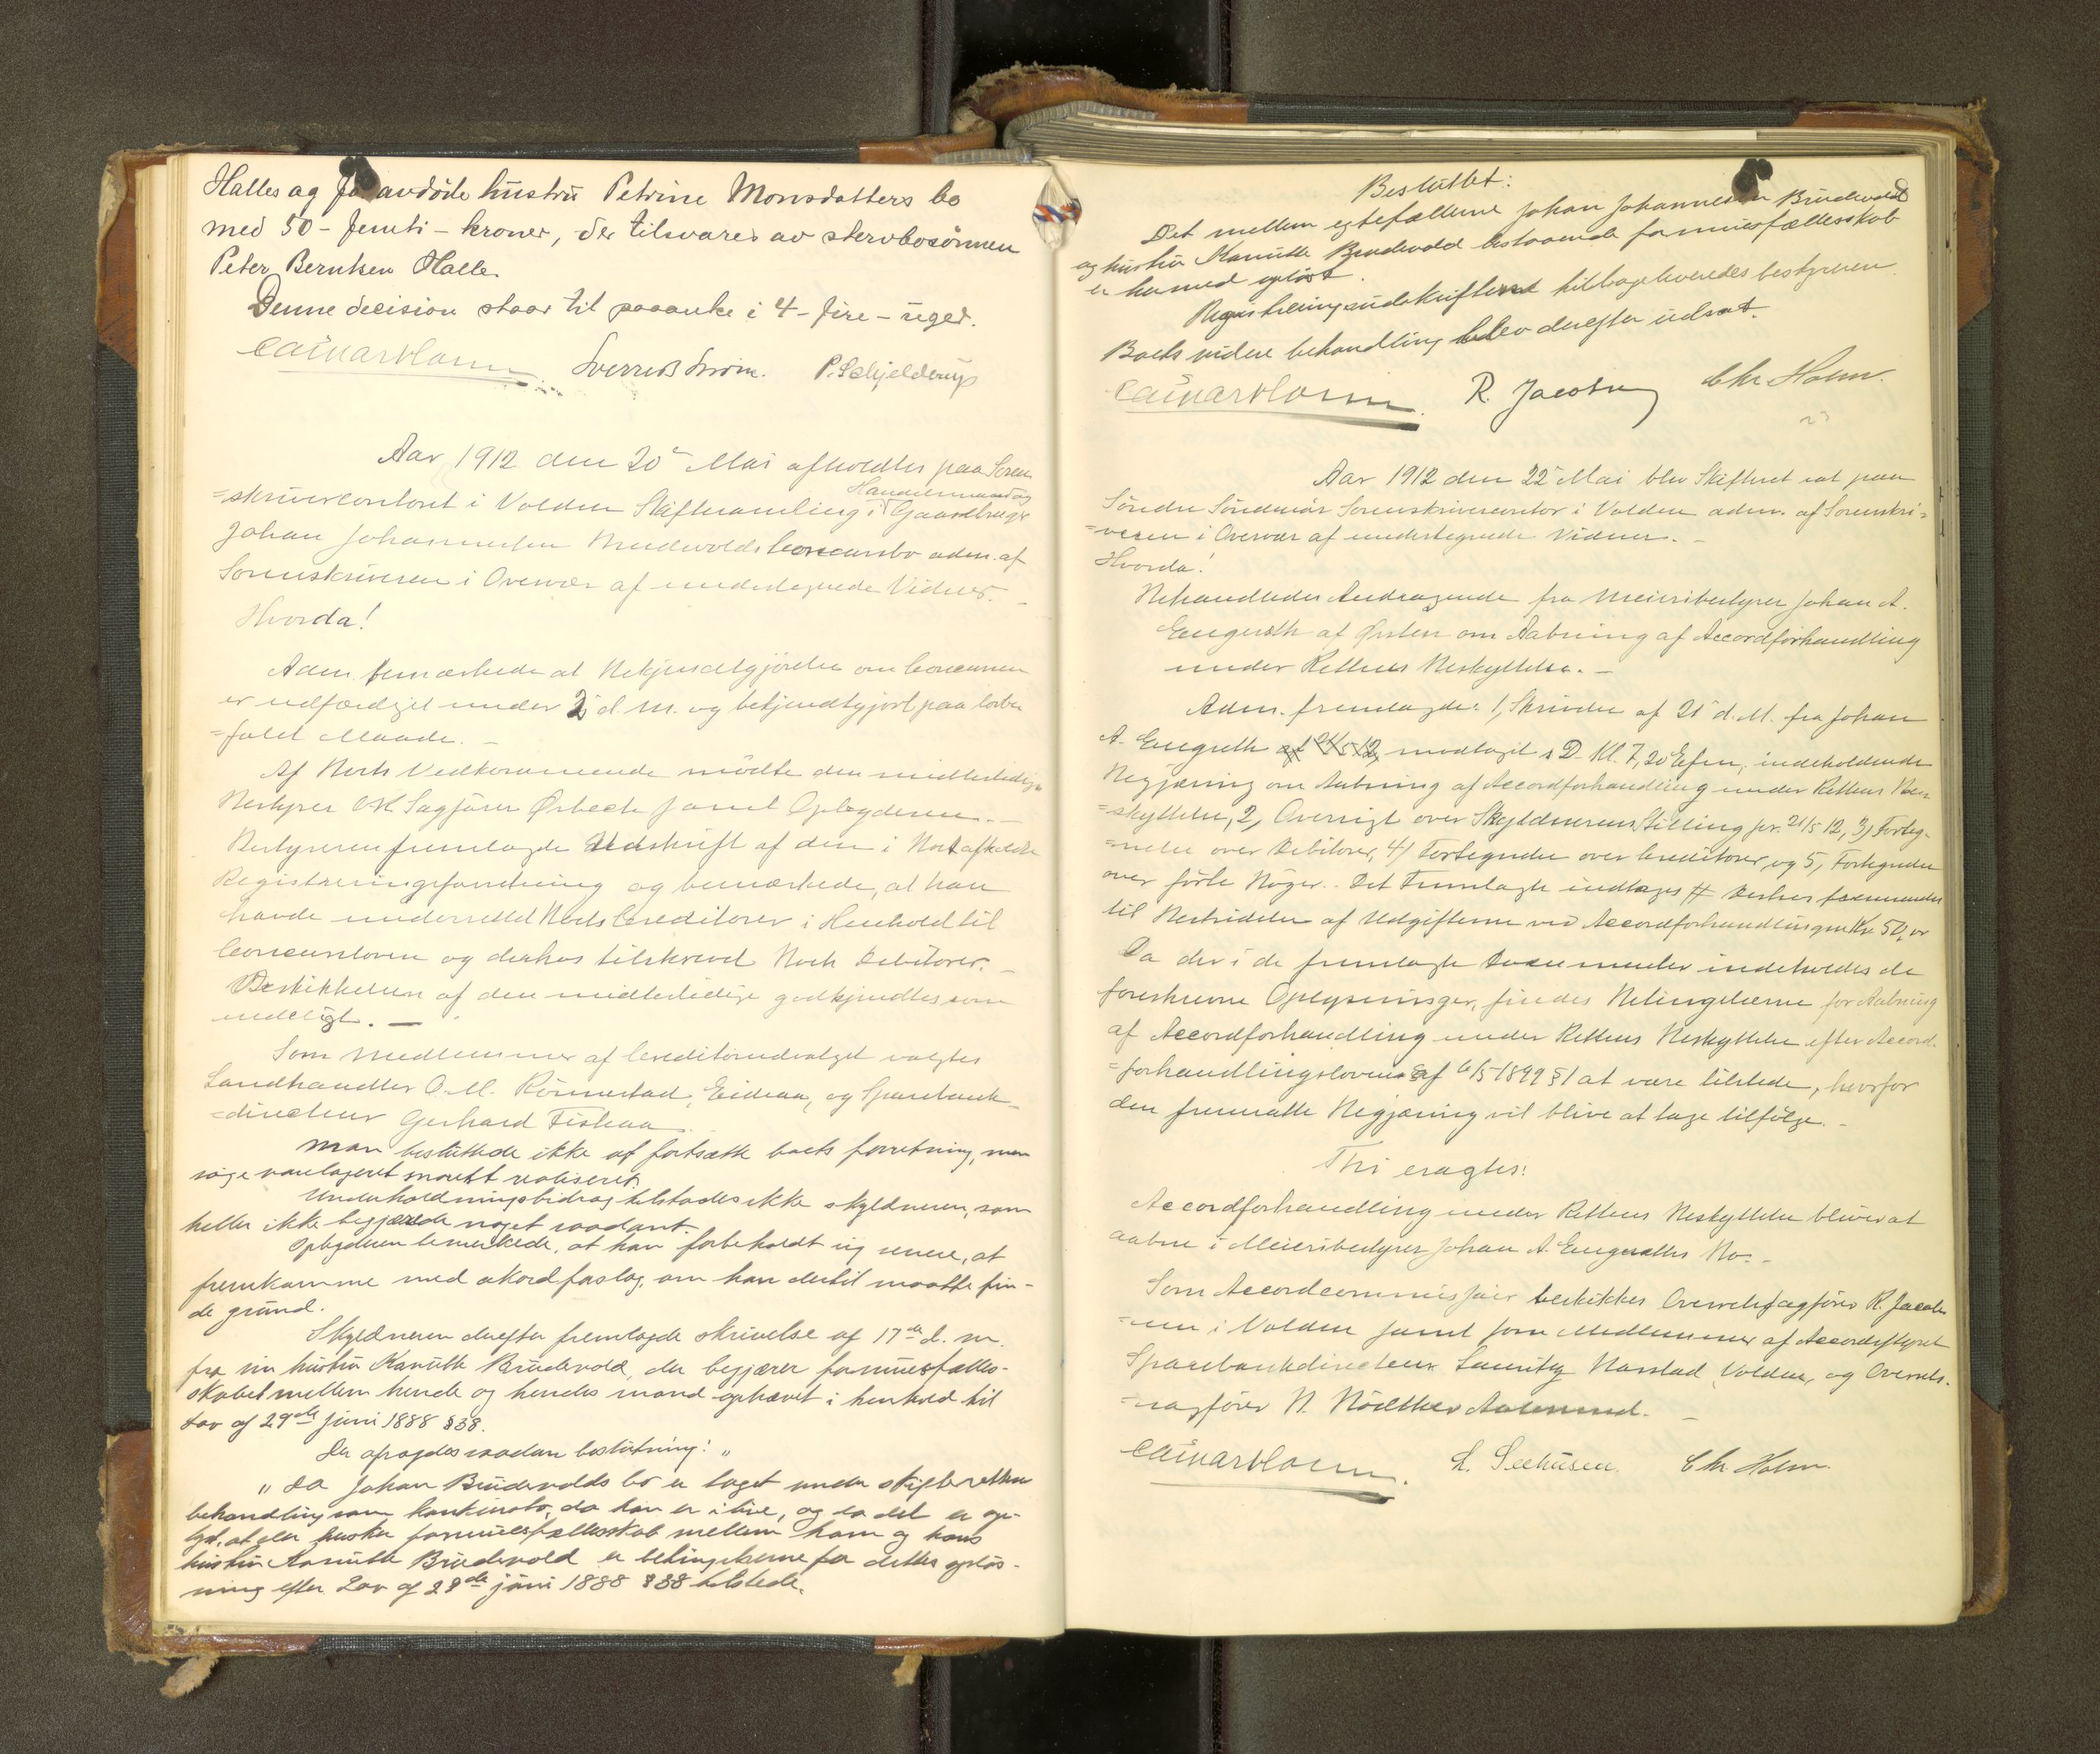 Halles og avdøde hustru Petrine Monsdatters bo
med 50 - femti - kroner, der tilsvares av stervbosønnen
Peter Berntsen Halle.
Denne decision staar til paaanke i 4 - fire - uger.
P. Schjelderup
Aar 1912 den 20de Mai afholdtes paa Soren
=skrivercontoret i Volden Skiftesamling i Handelsmand og Gaardbruger
Johan Johannesen Brudevolds Concursbo adm. af
Sorenskriveren i Overvær af undertegnede Vidner. -
Hvorda!
Adm. bemærkede at Bekjendtgjørelse om Concursen
er udfærdiget under 2 d. M. og bekjendtgjort paa lovbe
=falet Maade. -
Af Boets Vedkommende mødte den midlertidige
Bestyrer O.R. Sagfører Ørbech samt Opbyderen. -
Bestyreren fremlagde Udskrift af den i Boet afholdte
Registreringsforretning og bemærkede, at han
havde underrettet Boets Creditorer i Henhold til
Concursloven og derhos tilskrevet Boets Debitorer. -
Beskikkelsen af den midlertidige godkjendtes som
endeligt. -
Som Medlemmer af Creditorudvalget valgtes
Landhandler O. M. Rönnestad, Eidsaa, og Sparebank-
=directeur Gerhard Fiskaa.
Man besluttede ikke at fortsætte boets forretning, men
søge varelageret snarest realiseret.
Underholdningsbidrag tilstodes ikke skyldneren, som
heller ikke begjærede noget saadant.
Opbyderen bemerkede, at han forbeholdt sig senere, at
fremkomme med akordforslag, om han dertil maatte fin-
de grund.
Skyldneren derefter fremlagde skrivelse af 17de d. m.
fra sin hustru Karutte Brudevold, der begjærer formuesfælles-
skabet mellem hende og hendes mand ophævet i henhold til
lov af 29de juni 1888 § 38.
Der afsagdes saadan beslutning: "
" Da Johan Brudevolds bo er taget under skifterettens
behandling som konkursbo, da han er i live, og da det er op-
lyst, at der hersker formuesfællesskab mellem ham og hans
hustru Karutte Brudevold er betingelserne for dettes opløs-
ning efter Lov af 29de juni 1888 § 38 tilstede.
Besluttet:
Det mellem egtefællerne Johan Johannesen Brudevold
og hustru Karutte Brudevold bestaaende formuesfællesskab
er hermed opløst.
Registreringsudskriften tilbageleveredes bestyreren.
Boets videre behandling blev derefter udsat.
R. Jacobsen Chr. Holm.
Aar 1912 den 22de Mai blev Skifteret sat paa
Söndre Söndmörs Sorenskrivercontor i Volden adm. af Sorenskri=
=veren i Overvær af undertegnede Vidner. -
Hvorda!
Behandledes Andragende fra Meieribestyrer Johan A.
Engeseth af Ørsten om Aabning af Accordforhandling
under Rettens Beskyttelse. -
Adm. fremlagde: 1, Skrivelse af 21de d. M. fra Johan
A. Engeseth af 21/5 12, modtaget s. D. Kl. 7,20 Efm, indeholdende
Begjæring om Aabning af Accordforhandling under Rettens Be
=skyttelse, 2, Oversigt over Skyldnerens Stilling pr. 21/5 12, 3, Forteg-
=nelse over Debitorer, 4, Fortegnelse over Creditorer, og 5, Fortegnelse
over førte Bøger. Det Fremlagte indtages # Derhos fremsendes
til Bestridelse af Udgifterne ved Accordforhandlingen Kr. 50,00
Da der i de fremlagte Documenter indeholdes de
foreskrevne Oplysninger, findes Betingelserne for Aabning
af Accordforhandling under Rettens Beskyttelse efter Accord-
=forhandlingsloven af 6/5 1899 § 1 at være tilstede, hvorfor
den fremsatte Begjæring vil blive at tage tilfølge. -
Thi eragtes:
Accordforhandling under Rettens Beskyttelse bliver at
aabne i Meieribestyrer Johan A. Engeseths Bo. -
Som Accordcommissair beskikkes Overretssagfører R. Jacob
=sen i Volden samt som Medlemmer af Accordstyret
Sparebankdirecteur Lauritz Aarstad, Volden, og Overrets-
=sagfører N. Aalesund. -
L. Seehusen. Chr. Holm.